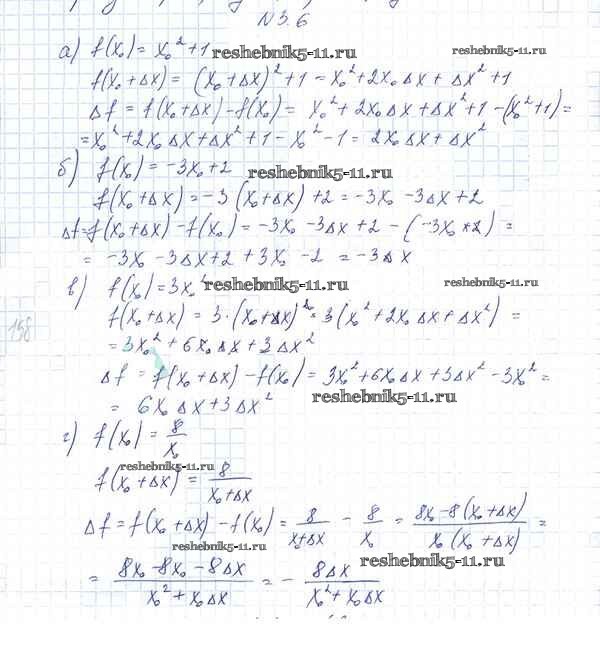 N 3.6
а) f(x₀) = x₀² + 1 reshebnik5-11.ru reshebnik5-11.ru
f(x₀ + Δx) = (x₀ + Δx)² + 1 = x₀² + 2x₀Δx + Δx² + 1
Δf = f(x₀ + Δx) - f(x₀) = x₀² + 2x₀Δx + Δx² + 1 - (x₀² + 1) =
= x₀² + 2x₀Δx + Δx² + 1 - x₀² - 1 = 2x₀Δx + Δx²
б) f(x₀) = -3x₀ + 2 reshebnik5-11.ru
f(x₀ + Δx) = -3(x₀ + Δx) + 2 = -3x₀ - 3Δx + 2
Δf = f(x₀ + Δx) - f(x₀) = -3x₀ - 3Δx + 2 - (-3x₀ + 2) =
= -3x₀ - 3Δx + 2 + 3x₀ - 2 = -3Δx
в) f(x₀) = 3x₀² reshebnik5-11.ru reshebnik5-11.ru
f(x₀ + Δx) = 3·(x₀ + Δx)² = 3(x₀² + 2x₀Δx + Δx²) =
158
= 3x₀² + 6x₀Δx + 3Δx²
Δf = f(x₀ + Δx) - f(x₀) = 3x₀² + 6x₀Δx + 3Δx² - 3x₀² =
= 6x₀Δx + 3Δx² reshebnik5-11.ru
г) f(x₀) = 8/x₀
reshebnik5-11.ru
f(x₀ + Δx) = 8/(x₀ + Δx)
Δf = f(x₀ + Δx) - f(x₀) = 8/(x₀ + Δx) - 8/x₀ = (8x₀ - 8(x₀ + Δx))/(x₀(x₀ + Δx)) =
reshebnik5-11.ru reshebnik5-11.ru
= (8x₀ - 8x₀ - 8Δx)/(x₀² + x₀Δx) = - 8Δx/(x₀² + x₀Δx)